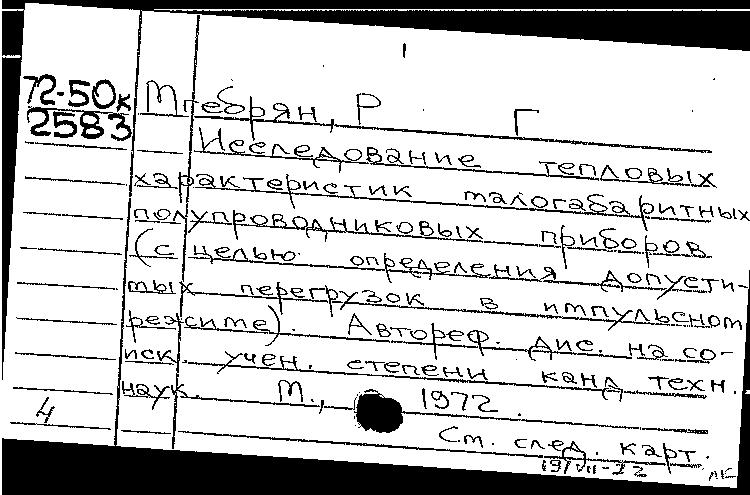 1
72-50к Мгебрян, Р Г
2583
Исследование тепловых
характеристик малогабаритных
полупроводниковых приборов
(с целью определения допусти-
мых перегрузок в импульсном
режиме). Автореф. дис. на со-
иск. учен. степени канд техн.
наук. М., 1972.
4
См. след. карт.
19/VII-72